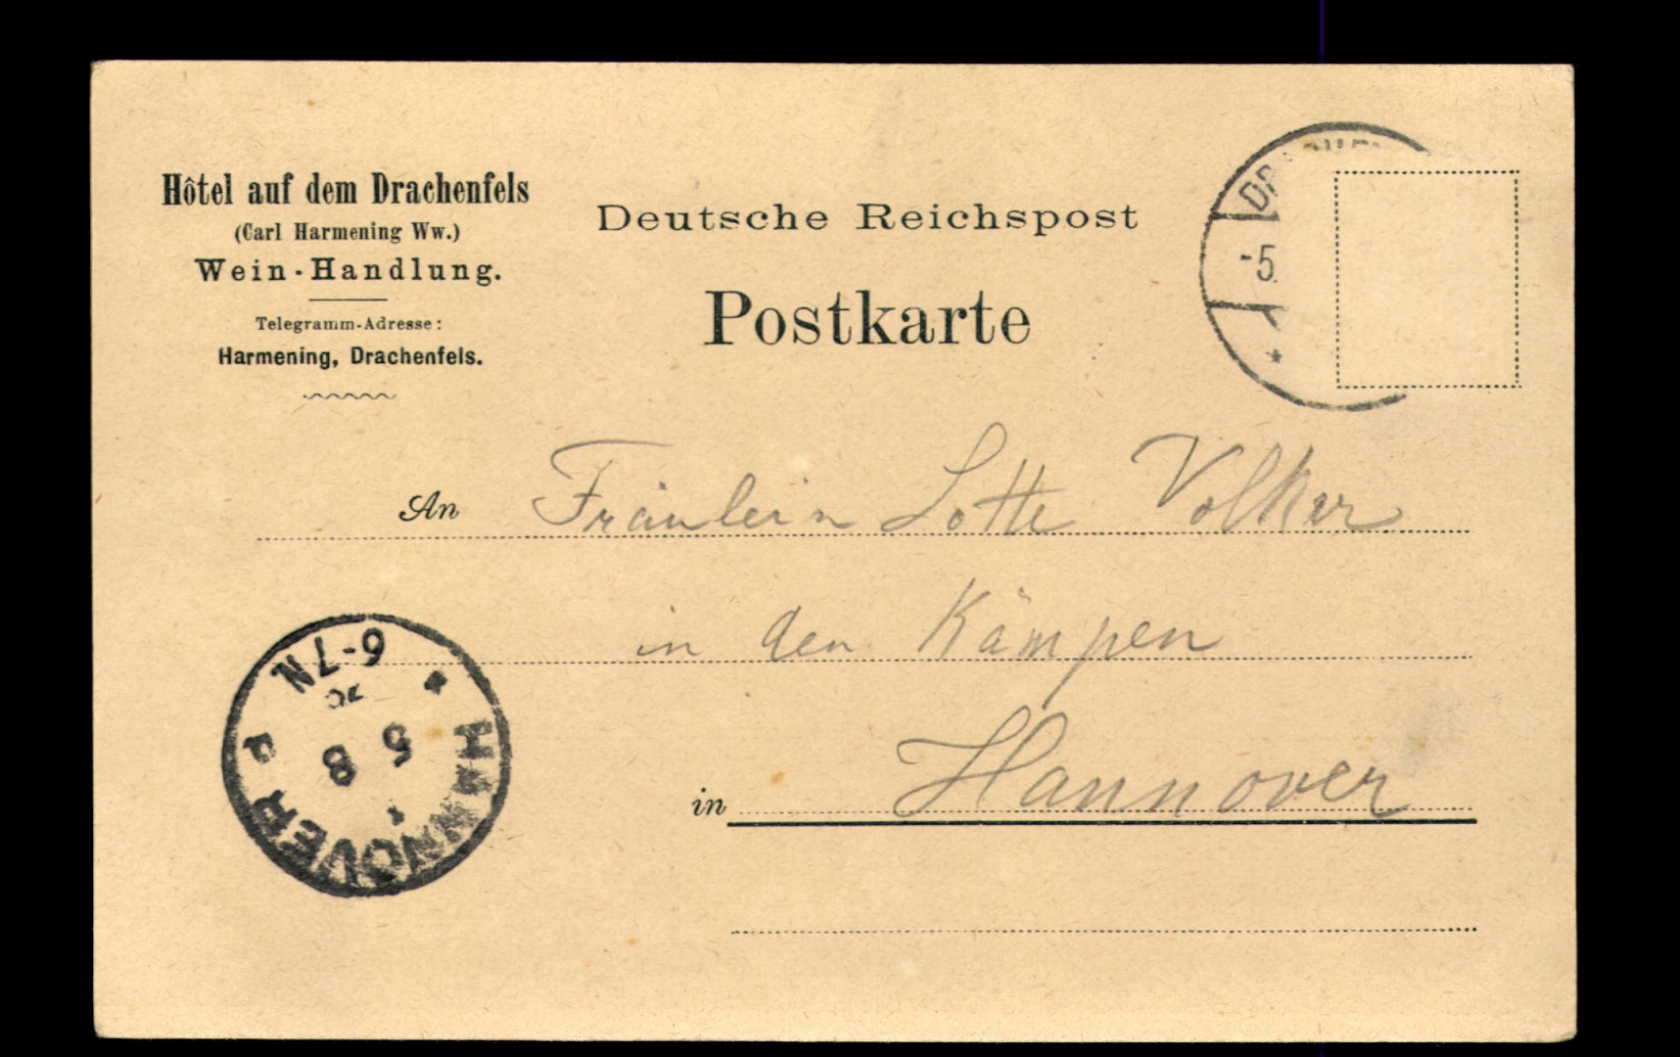 Hôtel auf dem Drachenfels
(Carl Harmening Ww.)
Wein-Handlung.
Telegramm-Adresse:
Harmening, Drachenfels.
Deutsche Reichspost
Postkarte
-5
An Fräulein Lotte Volker
in den Kämpen
in Hannover
HANNOVER
5 8
6-7N